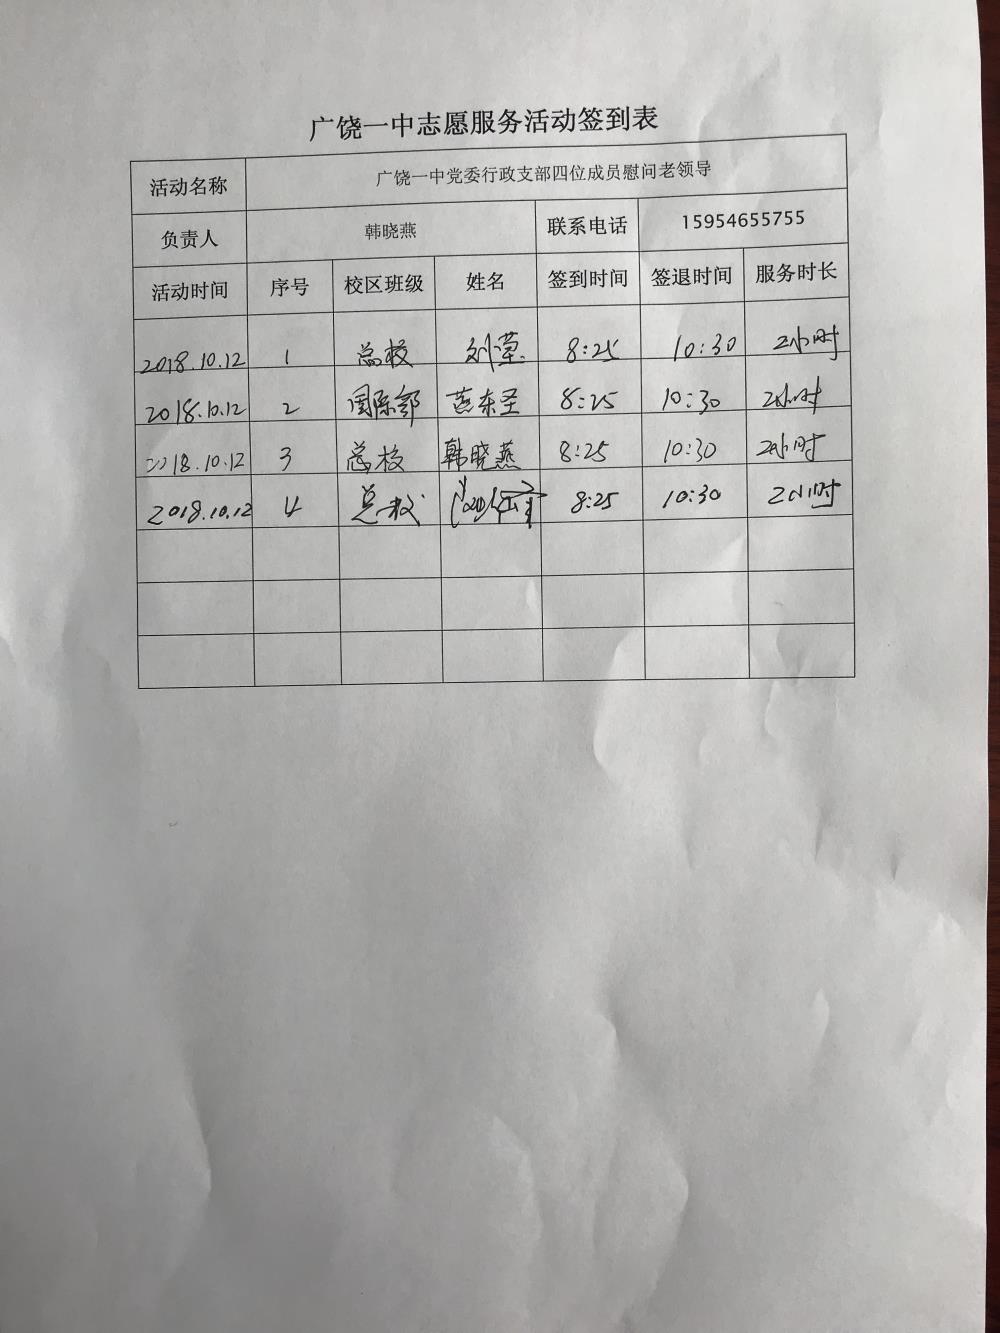 广饶一中志愿服务活动签到表
活动名称 广饶一中党委行政支部四位成员慰问老领导
负责人 韩晓燕 联系电话 15954655755
活动时间 序号 校区班级 姓名 签到时间 签退时间 服务时长
2018.10.12 1 总校 8:25 10:30 2小时
2018.10.12 2 国际部 燕东圣 8:25 10:30 2小时
2018.10.12 3 总校 韩晓燕 8:25 10:30 2小时
2018.10.12 4 总校 8:25 10:30 2小时